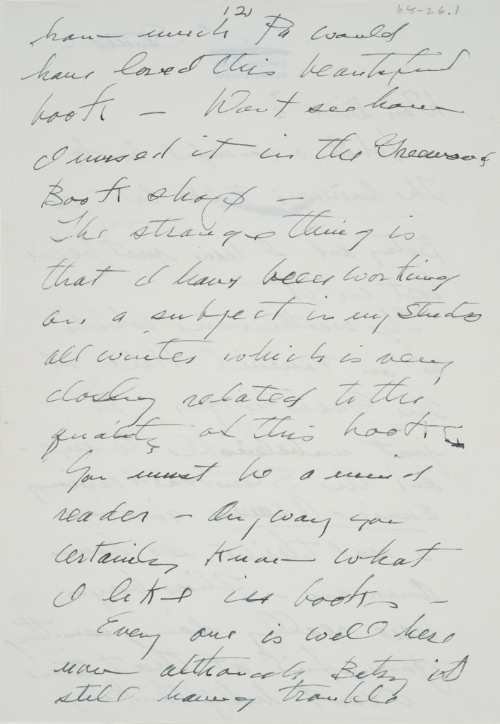 (2)
64-26.1
how much Pa would
have loved this beautiful
book — Don't see how
I missed it in the Greenwood
Book shop —
The strange thing is
that I have been working
on a subject in my studio
all winter which is very
closely related to the
quality of this book.
You must be a mind
reader — Anyway you
certainly know what
I like in books —
Every one is well here
now although Betsy is
still having trouble